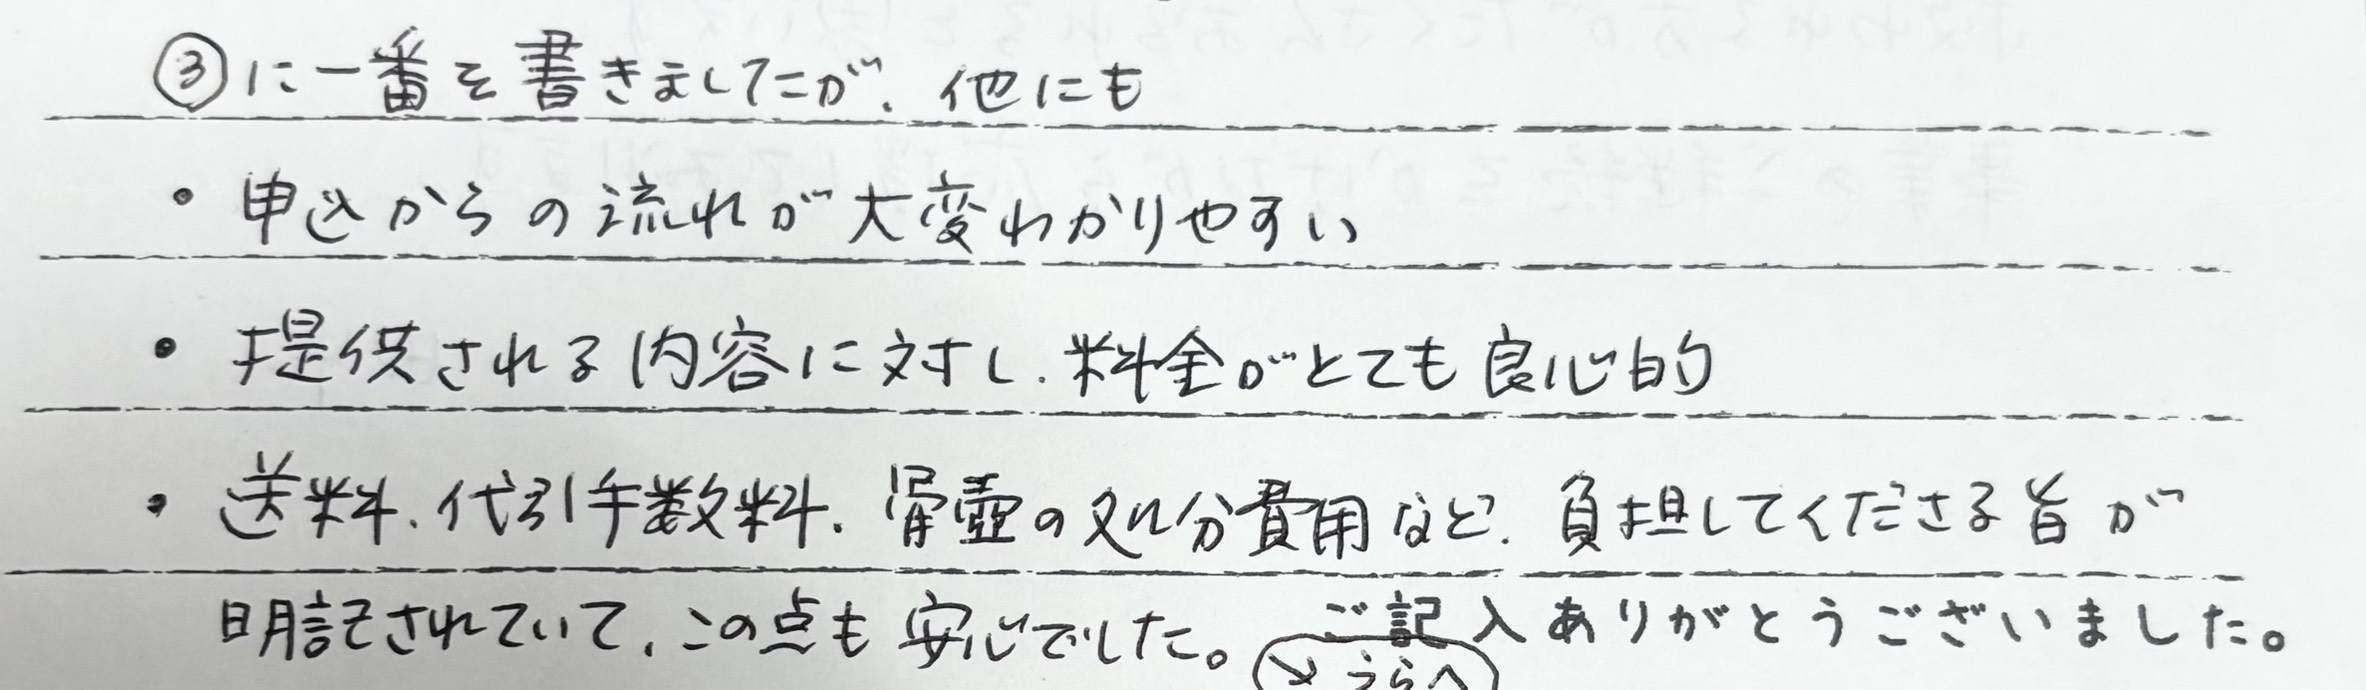 ③に一番を書きましたが、他にも
・申込からの流れが大変わかりやすい
・提供される内容に対し、料金がとても良心的
・送料、代引手数料、骨壺の処分費用など、負担してくださる旨が
明記されていて、この点も安心でした。 ご記入ありがとうございました。
↘うらへ